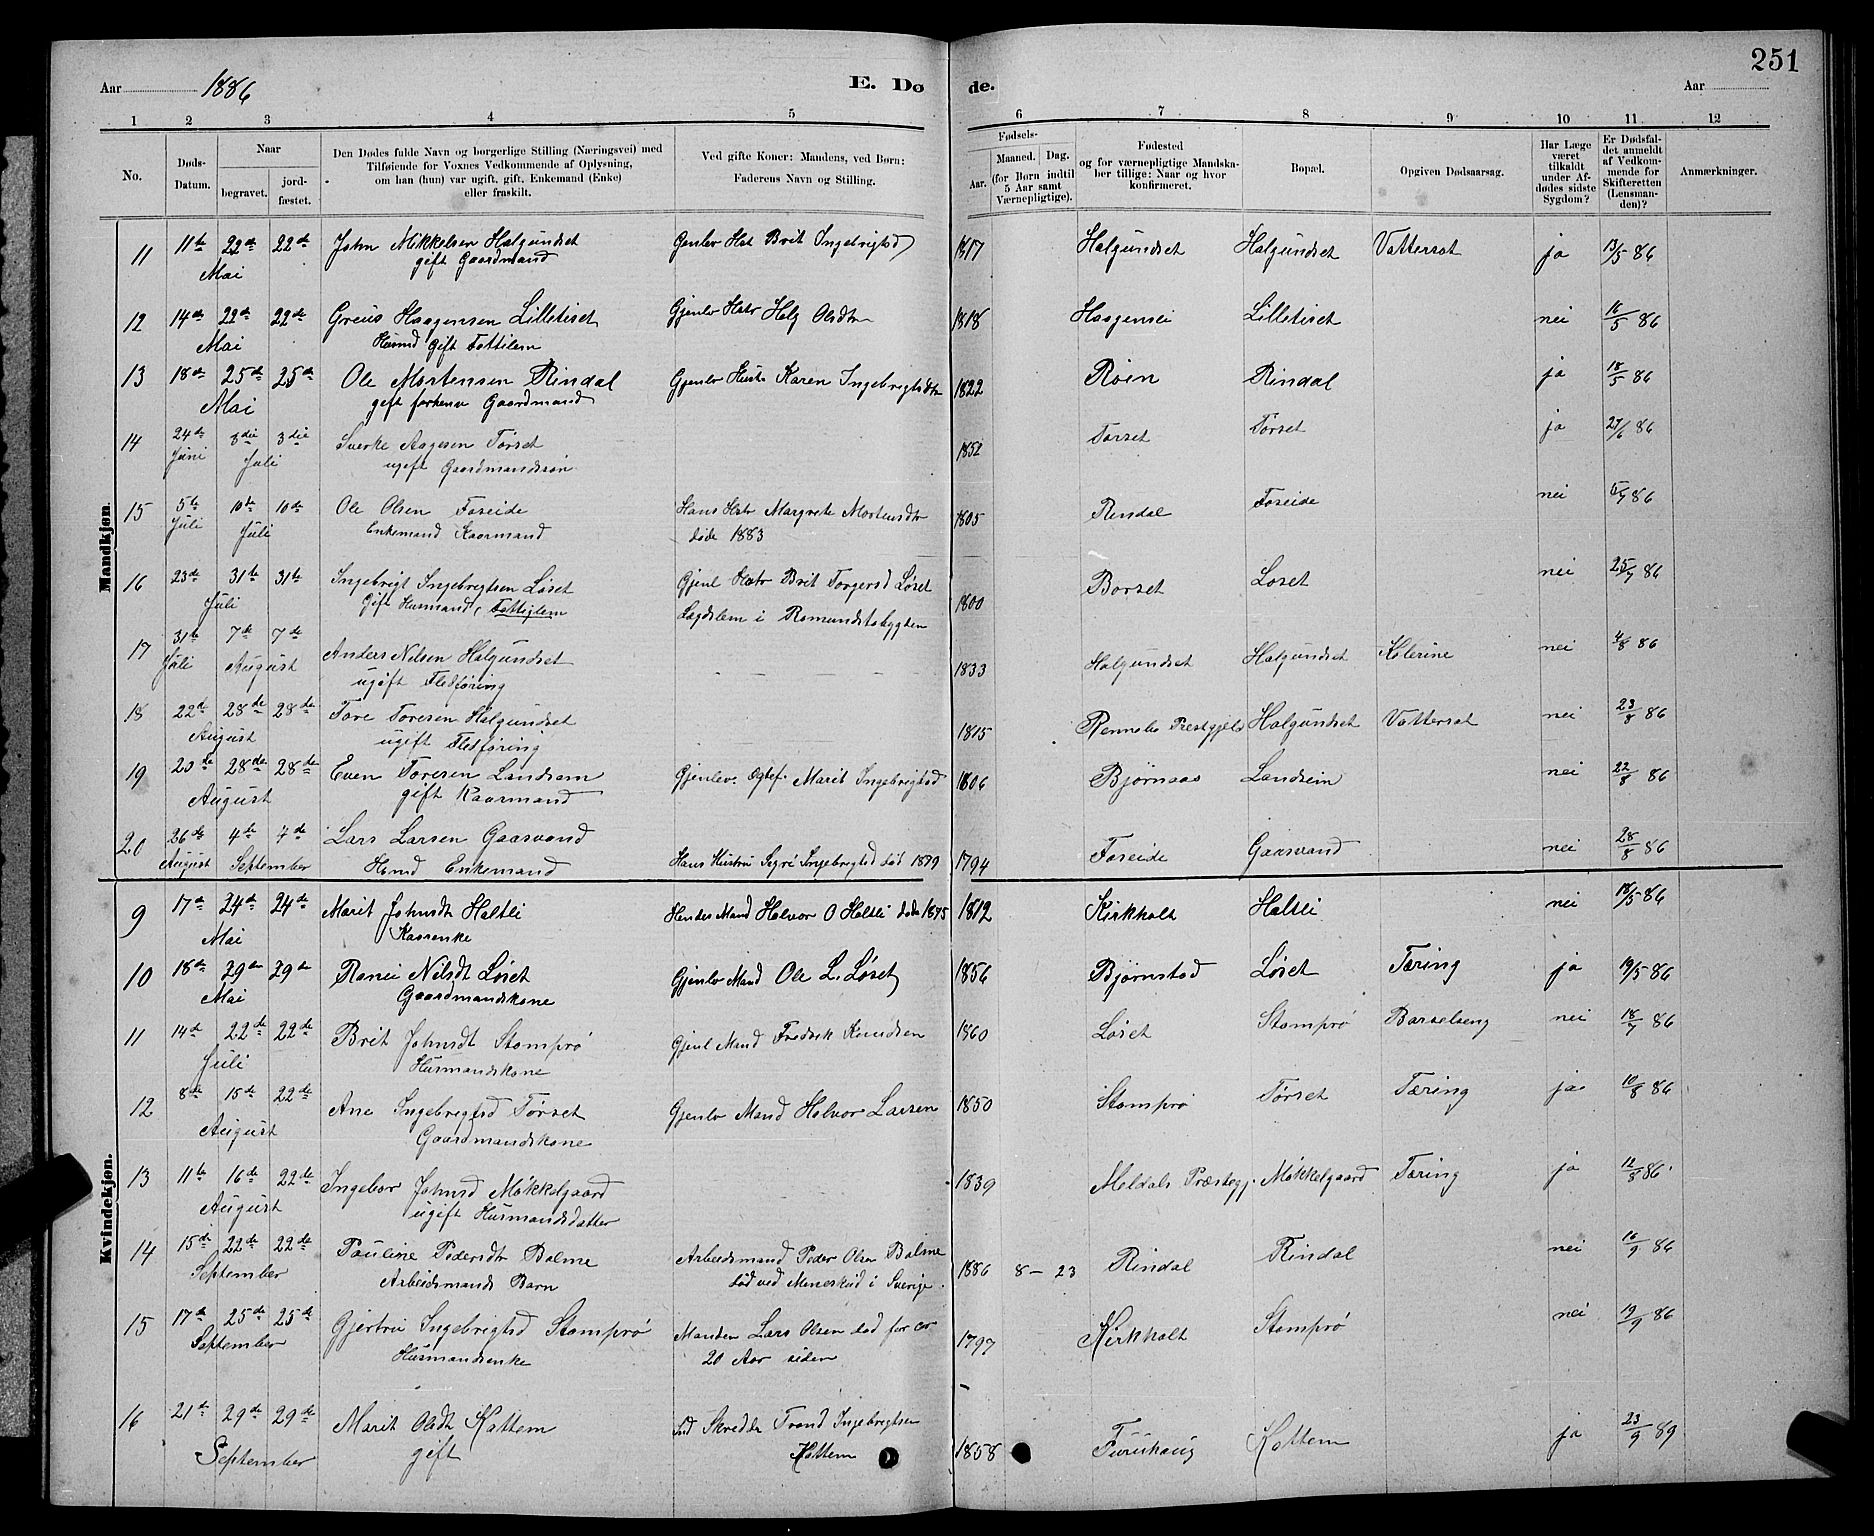 251
Aar 1886 E. Dø de. Aar
1 2 3 4 5 6 7 8 9 10 11 12
No. Døds-Datum. Naar begravet. jord-fæstet. Den Dødes fulde Navn og borgerlige Stilling (Næringsvei) med Tilføiende for Voxnes Vedkommende af Oplysning, om han (hun) var ugift, gift, Enkemand (Enke) eller fraskilt. Ved gifte Koner: Mandens, ved Børn: Faderens Navn og Stilling. Fødsels- Aar. Maaned. Dag. (for Børn indtil 5 Aar samt Værnepligtige). Fødested og for værnepligtige Mandskaber tillige: Naar og hvor konfirmeret. Bopæl. Opgiven Dødsaarsag. Har Læge været tilkaldt under Afdødes sidste Sygdom? Er Dødsfaldet anmeldt af Vedkommende for Skifteretten (Lensmanden)? Anmærkninger.
Mandkjøn.
11 11te 22de 22de John Mikkelsen Halgundset Gjenlev Hst Brit Ingebrigtsd 1817 Halgundset Halgundset Vattersot ja 13/5 86
Mai gift Gaardmand
12 14de 22de 22de Greius Haagensen Lilletiset Gjenlev Hstr Helg Olsdtr 1818 Haagensei Lilletiset nei 16/5 86
Mai Husmd gift Fattilem
13 18de 25de 25de Ole Mortensen Rindal Gjenlev Hustr Karen Ingebrigtsdtr 1822 Roen Rindal ja 18/5 86
Mai gift forhenv Gaardmand
14 24de 3die 3die Sverke Aagesen Tørset 1852 Tørset Tørset ja 27/6 86
Juni Juli ugift Gaardmandssøn
15 5te 10de 10de Ole Olsen Foseide Hans Hstr Margrete Mortensdtr 1805 Rindal Foseide nei 5/7 86
Juli Juli Enkemand Kaarmand døde 1883
16 23de 31te 31te Ingebrigt Ingebrigtsen Løset Gjenl Hstr Brit Torgersd Løset 1800 Borset Løset nei 25/7 86
Juli Gift Husmand, Fattiglem Lægdslem i Romundstabygden
17 31te 7de 7de Anders Nilsen Halgundset 1833 Halgundset Halgundset Kolerine nei 4/8 86
Juli August ugift Fledføring
18 22de 28de 28de Tore Toresen Halgundset 1815 Rennebo Præstgjeld Halgundset Vattersot nei 23/8 86
August ugift Fledføring
19 20de 28de 28de Even Toresen Landsem Gjenlev. Egtef. Marit Ingebrigtsd 1806 Bjørnaas Landsem nei 22/8 86
August gift Kaarmand
20 26de 4de 4de Lars Larsen Gaasvand Hans Hustru Sigri Ingebrigtsd død 1879 1794 Foseide Gaasvand nei 28/8 86
August September Hsmd Enkemand
Kvindekjøn.
9 17de 24de 24de Marit Johnsdt Haltli Hendes Mand Halvor O Haltli døde 1875 1812 Kirkholt Haltli nei 18/5 86
Mai Kaarenke
10 18de 29de 29de Ranei Nilsdt Løset Gjenlev Mand Ole L. Løset 1856 Bjørnstad Løset Tæring ja 19/5 86
Mai Gaardmandskone
11 14de 22de 22de Brit Johnsdt Stomprø Gjenl Mand Fredrik Knudsen 1860 Løset Stomprø Barselseng nei 18/7 86
Juli Husmandskone
12 8de 15de 22de Ane Ingebrigtsd Tørset Gjenlev Mand Halvor Larsen 1850 Stomprø Tørset Tæring ja 10/8 86
August Gaardmandskone
13 11te 16de 22de Ingebor Johnsd Møkkelgaard 1839 Meldals Præstegj. Møkkelgaard Tæring ja 12/8 86
August ugift Husmandsdatter
14 15de 22de 22de Pauline Pedersdtr Bolme Arbeidsmand Peder Olsen Bolme 1886 8 – 23 Rindal Rindal nei 16/9 86
September Arbeidsmands Barn død ved Meneskud i Sverige.
15 17de 25de 25de Gjertru Ingebrigtsd Stomprø Manden Lars Olsen død for cr 1797 Kirkholt Stomprø nei 19/9 86
September Husmandsenke 20 Aar siden
16 21de 29de 29de Marit Olsdt Kattem Skredder Trond Ingebrigtsen 1858 Furuhaug Kattem ja 23/9 89
September gift Kattem